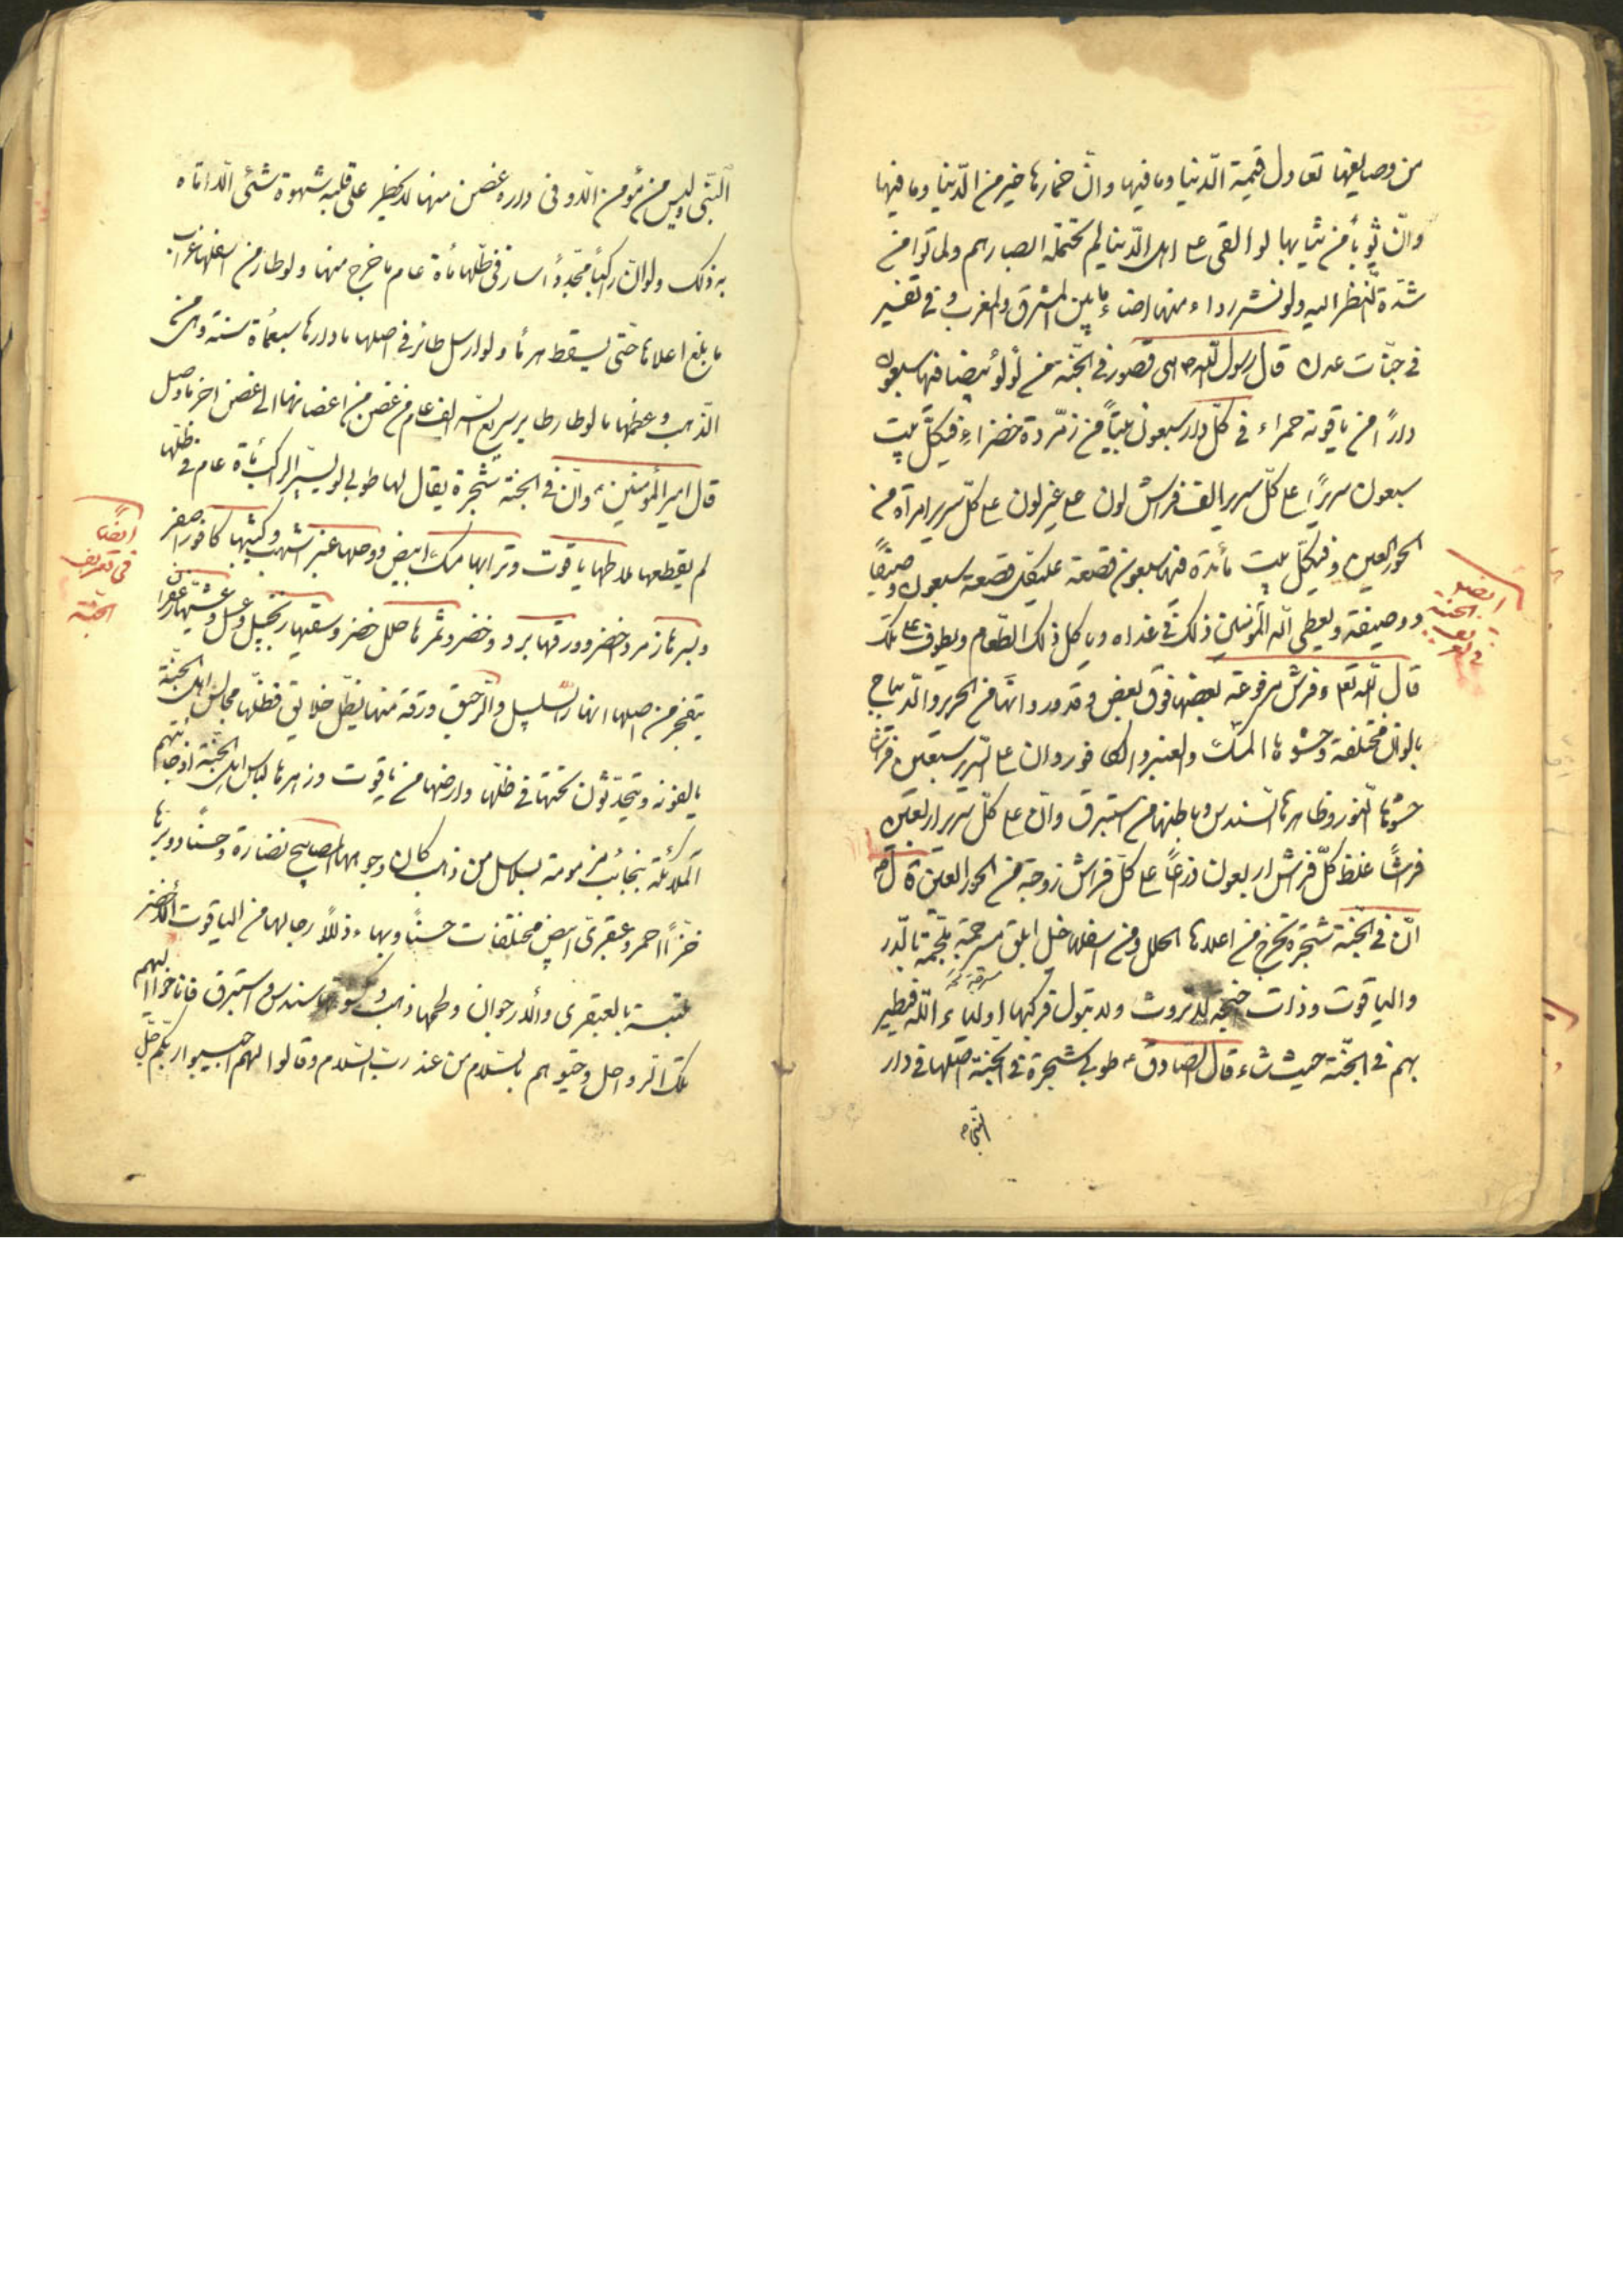 من وصايفها تعادل قيمة الدّنيا وما فيها وانّ خمارها خير من الدّنيا وما فيها
وانّ ثوباً من ثيابها لو القى على اهل الدّنيا لم تحتمله ابصارهم ولماتوا من
شدّة النّظر اليه ولو نشر رداء منها اضاء ما بين المشرق والمغرب و فى تفسير
فى جنّات عدن قال رسول اللّه ص هى قصور فى الجنّة من لؤلؤ بيضا فيها سبعون
داراً من ياقوتة حمراء فى كلّ دار سبعون بيتاً من زمّردة خضراء فى كلّ بيت
سبعون سريراً على كلّ سرير الف فراش لون على غير لون على كلّ سرير امرأة من
الحور العين و فى كلّ بيت مائدة فيها سبعون قصعة على كلّ قصعة سبعون وصيفاً
و وصيفة و يعطى اللّه المؤمنين ذلك فى غداه و ياكل ذلك الطّعام و يطوف على تلك
ايضا الجنة فى
قال اللّه تعا و فرش مرفوعة بعضها فوق بعض و قد ورد انها من الحرير و الدّيباج
بالوان مختلفة وحشوها المسك و العنبر و الكافور و ان على السّرير سبعين فراشا
حشوها النّور و ظاهرها السّندس و باطنها من استبرق وانّ على كلّ سرير اربعين
فراشاً غلظ كلّ فراش اربعون ذرعاً على كلّ فراش زوجة من الحور العين قال ص
انّ فى الجنّة شجرة تخرج من اعلاها الحلل و من اسفلها خيل ابلق مسرجة ملجمة بالدّر
والياقوت و ذات اجنحة لا تروث ولا تبول فركبها اولياء اللّه فتطير
بهم فى الجنّة حيث شاء قال الصّادق ع طوبى شجرة فى الجنّة اصلها فى دار
النّبى ص
النّبى وليس من مؤمن الّا و فى داره غصن منها لا يخطر على قلبه شهوة شئى الّا اتاه
به ذلك ولو انّ راكباً مجدّاً سار فى ظلّها مأة عام ما خرج منها ولو طار من اسفلها غراب
ما بلغ اعلاها حتّى يسقط هرما و لو ارسل طائر فى اصلها ما دارها سبعمأة سنة وهى من
الذّهب و عظمها ما لو طار طاير سريع السير الف عام من غصن من اغصانها الى غصن اخر ما وصل
قال امير المؤمنين ع وانّ فى الجنّة شجرة يقال لها طوبى لو يسير الراكب مأة عام فى ظلّها
لم يقطعها علاطها ياقوت و ترابها مسك ابيض و وحلها عنبر اشهب و كثيبها كافور اصفر
ايضاً فى تعريف الجنّة
و بسرها زمرد اخضر و ورقها برد و خضر و ثمرها حلل خضر و سقيها زنجبيل و عسل و عشيبها زعفران
يتفجر من اصلها انهار السّلسبيل و الرّحيق ورقة منها تظلّ خلايق فظلّها مجالس اهل الجنّة
يالفونه و يتحدّثون تحتها فى ظلّها وارضها من ياقوت و زهرها لباس اهل الجنّة اذ جائتهم
الملائكة بنجائب مزمومة بسلاسل من ذهب كان وجوهها المصابيح نضارة و حسناً و وبرها
خزّاً احمر و عبقرى ابيض مختلفات حسناً و بهاء ذللاً رحالها من الياقوت الاخضر
ملبسة بالعبقرى و الارجوان و لجمها ذهب و كسوتها سندس و استبرق فاناخوا اليهم
تلك الرّواحل و حيّوهم بالسّلام من عند ربّ السّلام و قالوا لهم اجيبوا ربّكم جلّ